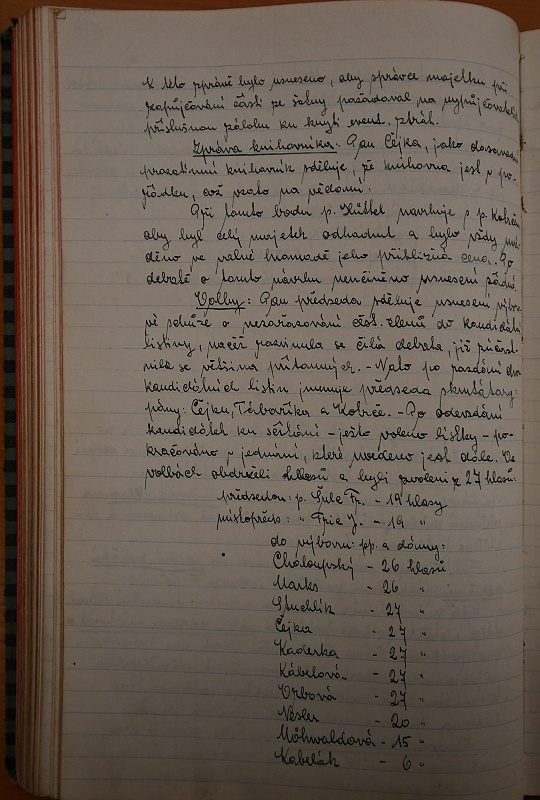 K této zprávě bylo usneseno, aby správce majetku při
zapůjčování části ze šatny požadoval na vypůjčovateli
příslušnou zálohu ku krytí event. ztrát.
Zpráva knihovníka: Pan Čejka, jako dosavadní
prozatimní knihovník sděluje, že knihovna jest v po-
řádku, což vzato na vědomí.
Při tomto bodu p. Hüttel navrhuje s p. Kobrčem
aby byl celý majetek odhadnut a bylo vždy uve-
děno ve valné hromadě jeho přibližná cena. Po
debatě o tomto návrhu neučiněno usnesení žádné.
Volby: Pan předseda sděluje usnesení výbor.
vé schůze o nezařazování čest. členů do kandidátní
listiny, načež rozvinula se čilá debata, jíž zúčast-
nila se většina přítomných. - Nato po rozdání
kandidátních listin jmenuje předseda skrutátory:
pány: Čejku, Térbovika a Kobrče. - Po odevzdání
kandidátek ku sčítání - ježto voleno lístky - po-
kračováno v jednání, které uvedeno jest dále. Ve
volbách obdrželi hlasů a byli zvoleni z 27 hlasů:
předsedou: p. Šulc Fr. - 19 hlasy
místopředs: " Fric J. - 19 "
do výboru: pp. a dámy:
Chaloupský - 26 hlasů
Marks - 26 "
Stuchlík - 27 "
Čejka - 27 "
Kaderka - 27 "
Kábelová - 27 "
Vrbová - 27 "
Nésler - 20 "
Möhwaldová - 15 "
Kabelák - 6 "